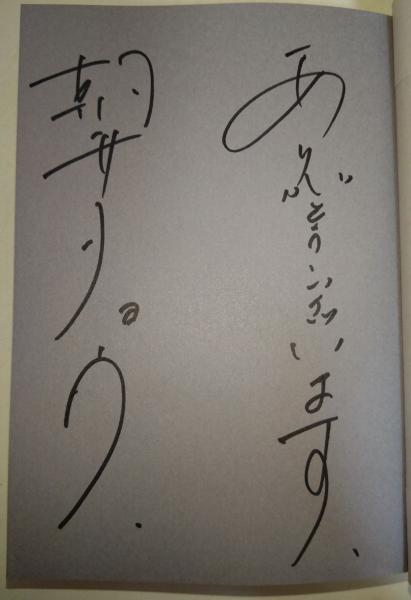 ありがとうございます、
朝井リョウ.